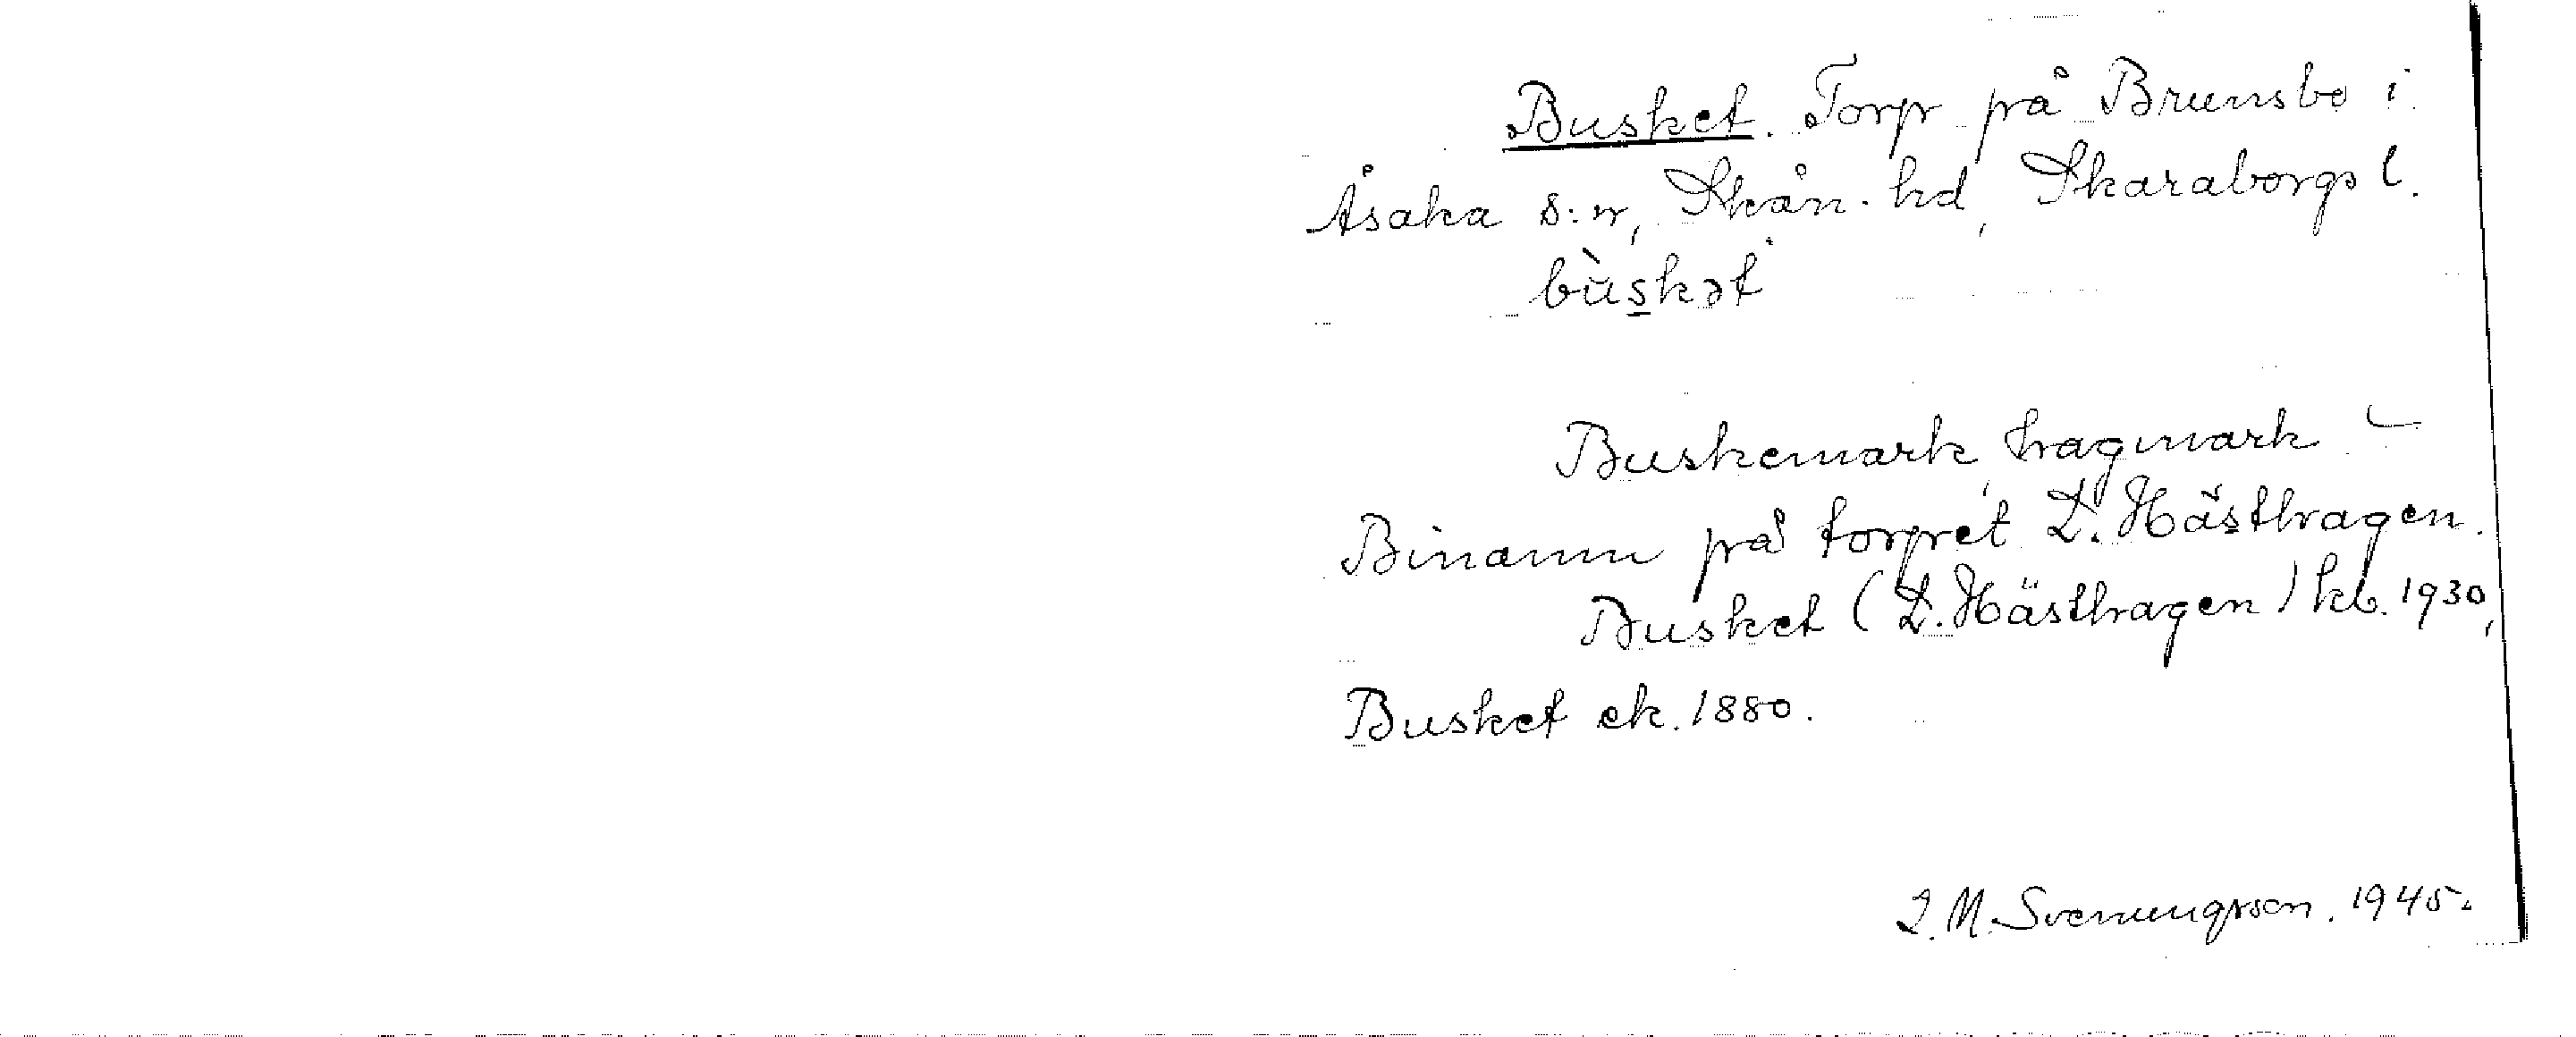 Busket. Torp på Brunsbo i
Åsaka s:n, Skån. hd, Skaraborgs l.
bùskət
Buskemark, hagmark –
Binamn på torpet L. Hästhagen.
Busket (L. Hästhagen) kb. 1930,
Busket ek. 1880.
J. M. Svenungsson. 1945.